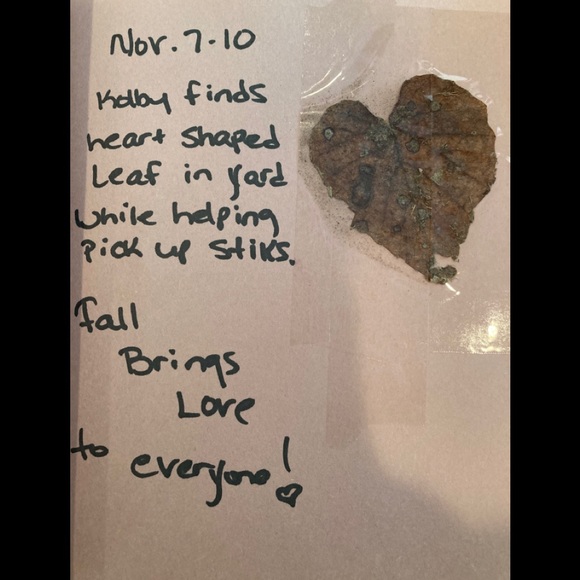 Nov. 7-10
Kolby finds
heart shaped
Leaf in yard
while helping
pick up stiks.
Fall
Brings
Love
to everyone!